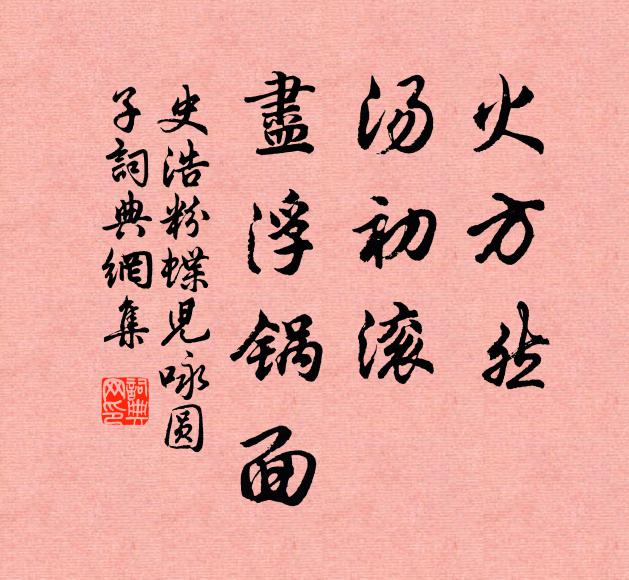 火方然
汤初滚
盡浮锅面
史浩粉蝶児咏圆
子詞典網集
詞典
网印